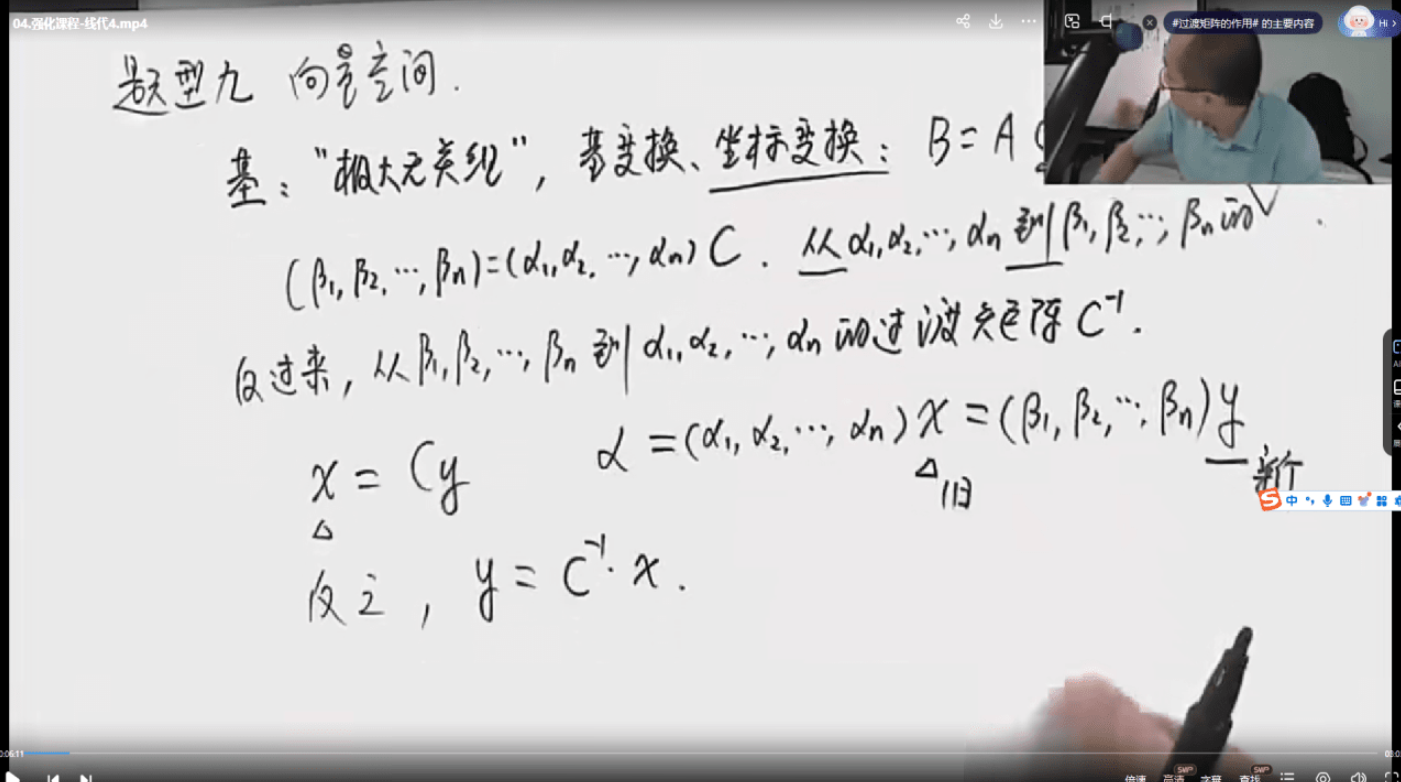 04.强化课程-线代4.mp4
#过渡矩阵的作用# 的主要内容
Hi
题型九 向量空间.
基: “极大无关组”, 基变换、坐标变换: B = A
(β₁, β₂, ⋯, βₙ) = (α₁, α₂, ⋯, αₙ) C. 从 α₁, α₂, ⋯, αₙ 到 β₁, β₂, ⋯, βₙ 的
反过来, 从 β₁, β₂, ⋯, βₙ 到 α₁, α₂, ⋯, αₙ 的过渡矩阵 C⁻¹.
x = Cy α = (α₁, α₂, ⋯, αₙ) x = (β₁, β₂, ⋯, βₙ) y
旧
反之, y = C⁻¹·x.
中
倍速 高清 字幕 查找